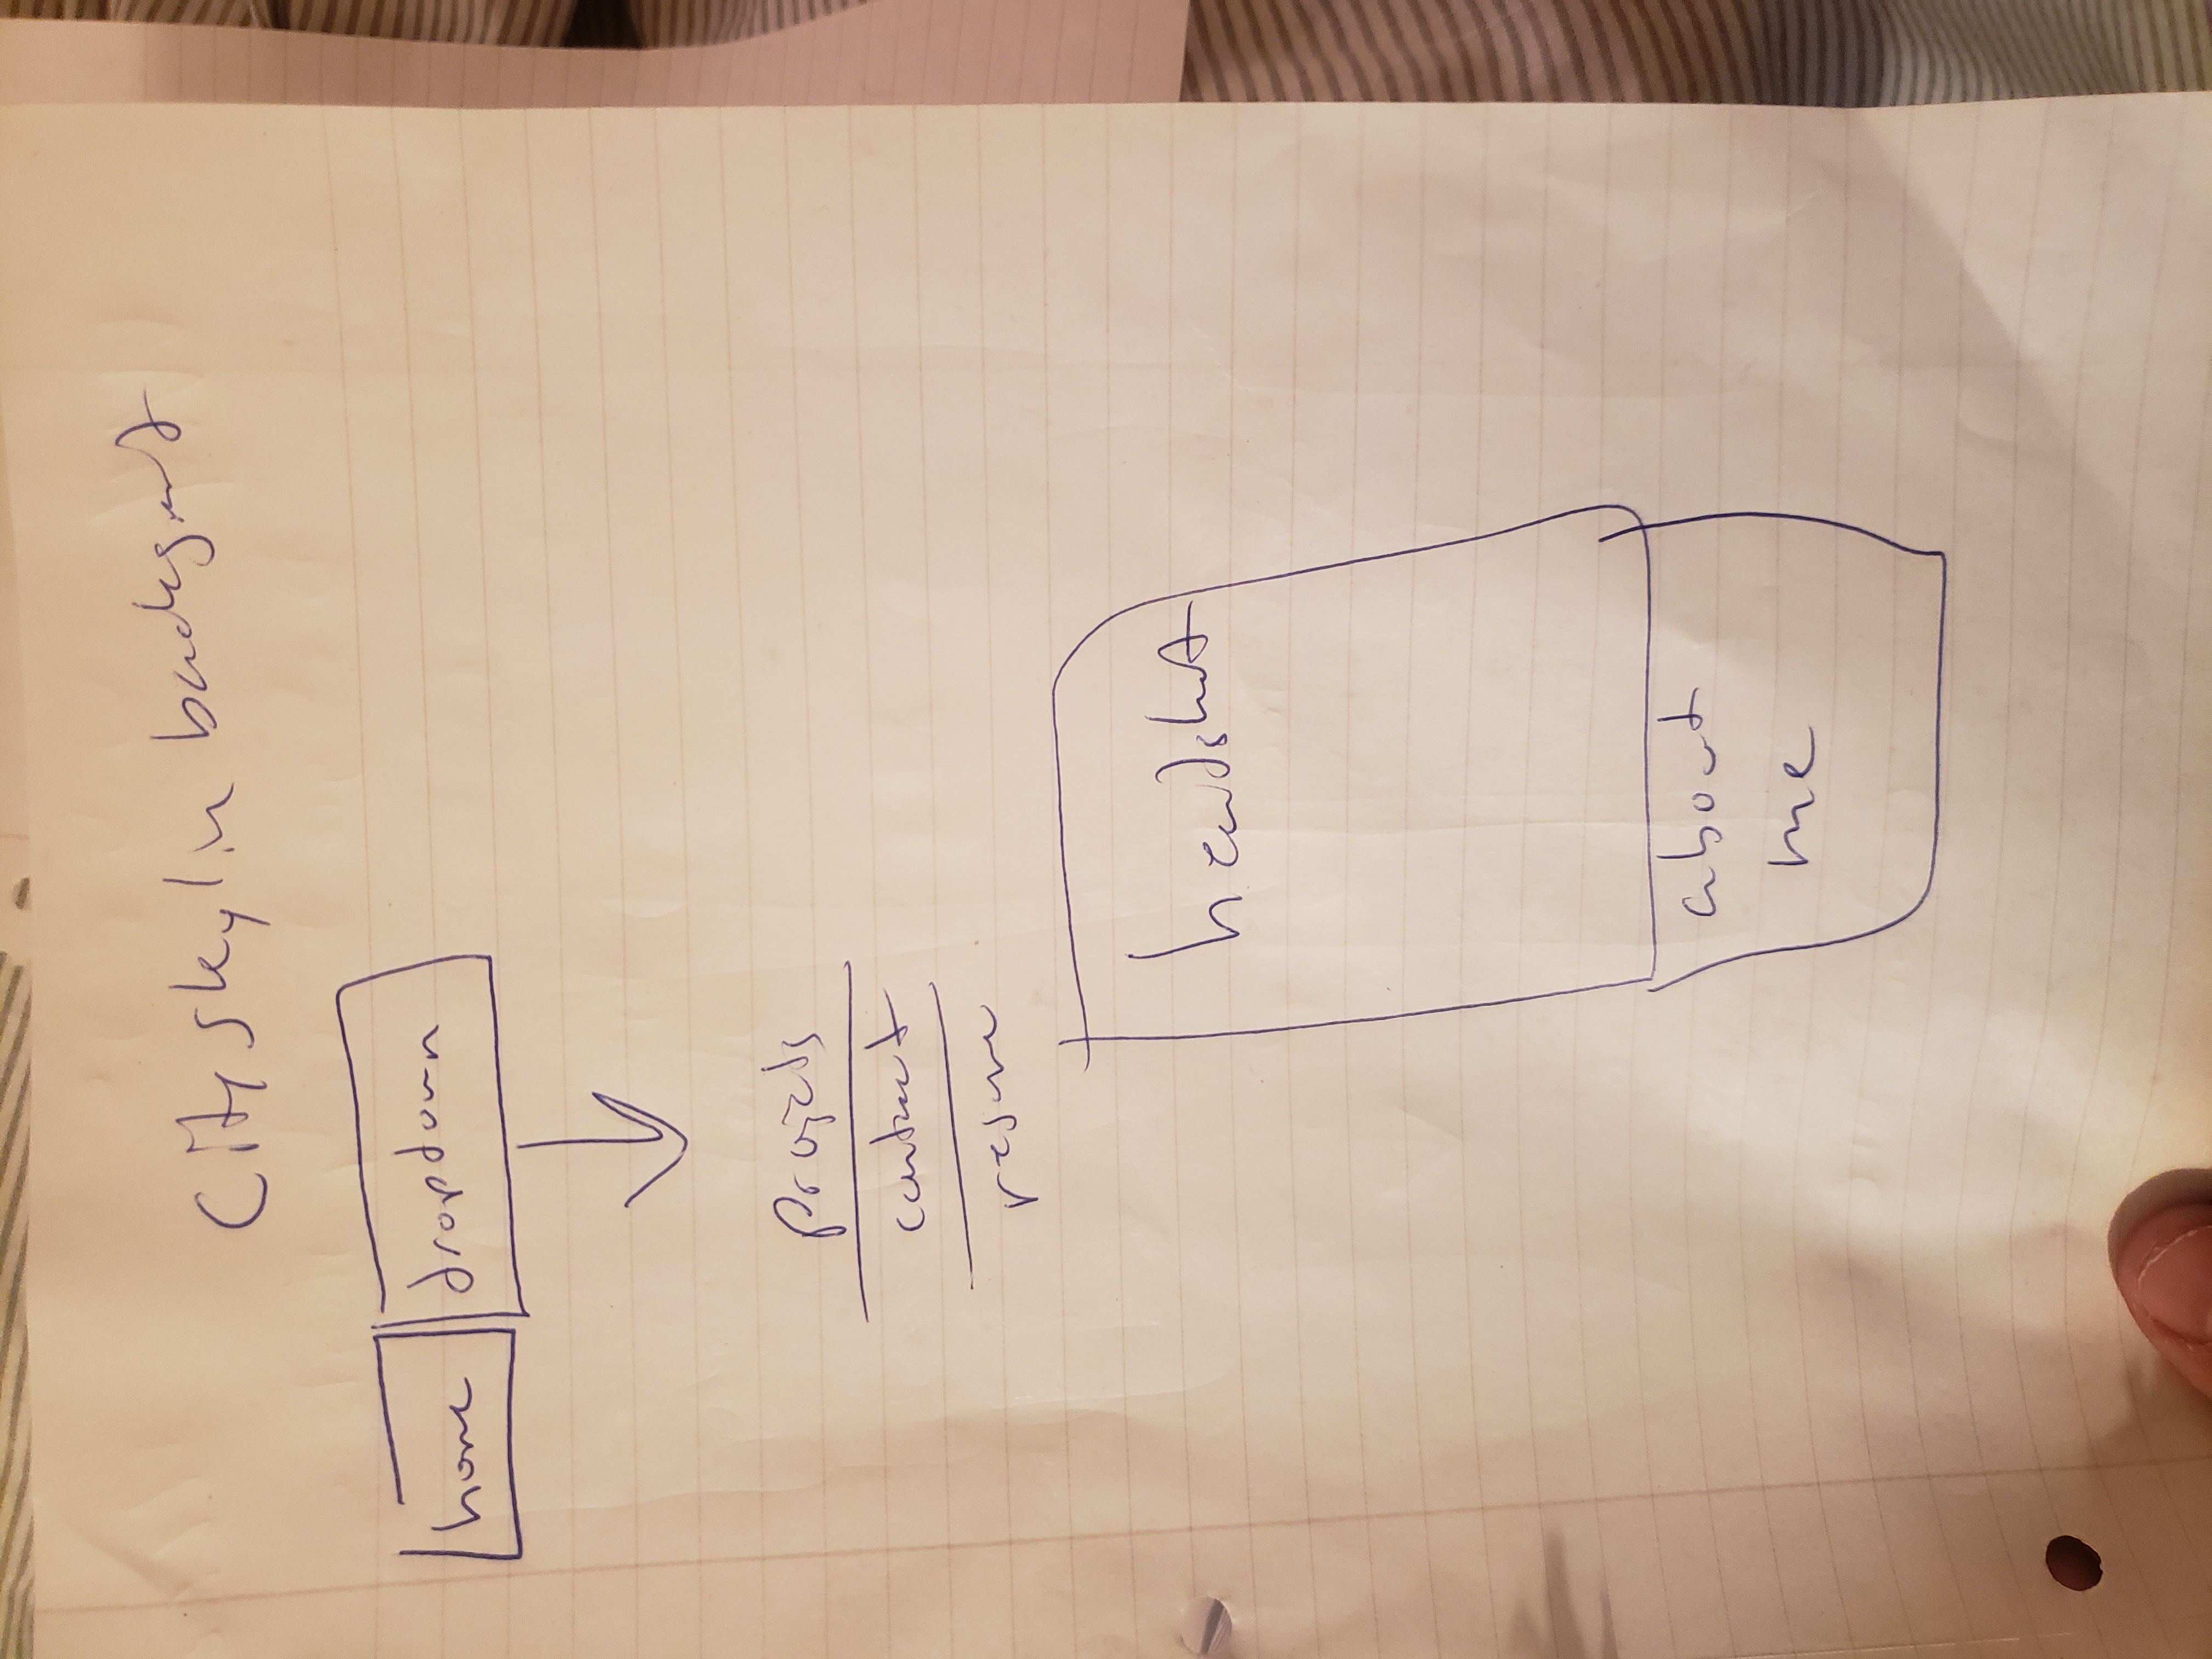 City skylin background
home dropdown
projects
contact
resume
headshot
about
me